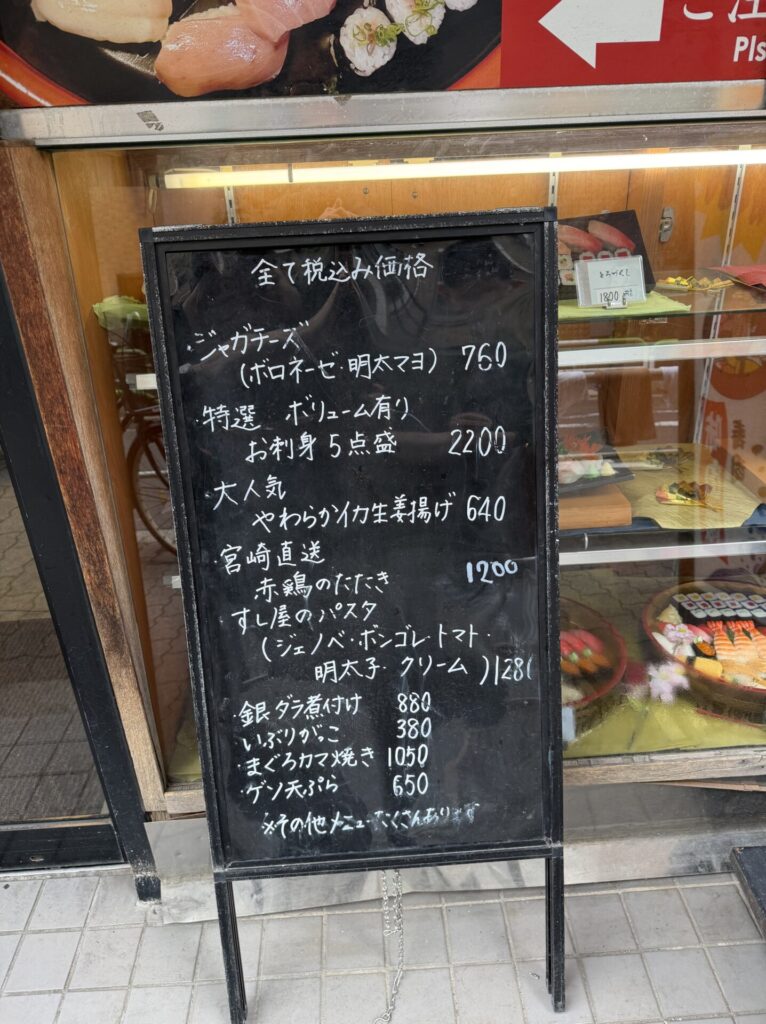 Pls
全て税込み価格
・ジャガチーズ
(ボロネーゼ・明太マヨ) 760
・特選 ボリューム有り
お刺身5点盛 2200
・大人気
やわらかイカ生姜揚げ 640
・宮崎直送
赤鶏のたたき 1200
すし屋のパスタ
(ジェノベ・ボンゴレ・トマト・
明太子・クリーム)
・銀ダラ煮付け 880
・いぶりがっこ 380
・まぐろカマ焼き 1050
・ゲソ天ぷら 650
※その他メニューたくさんあります
1800